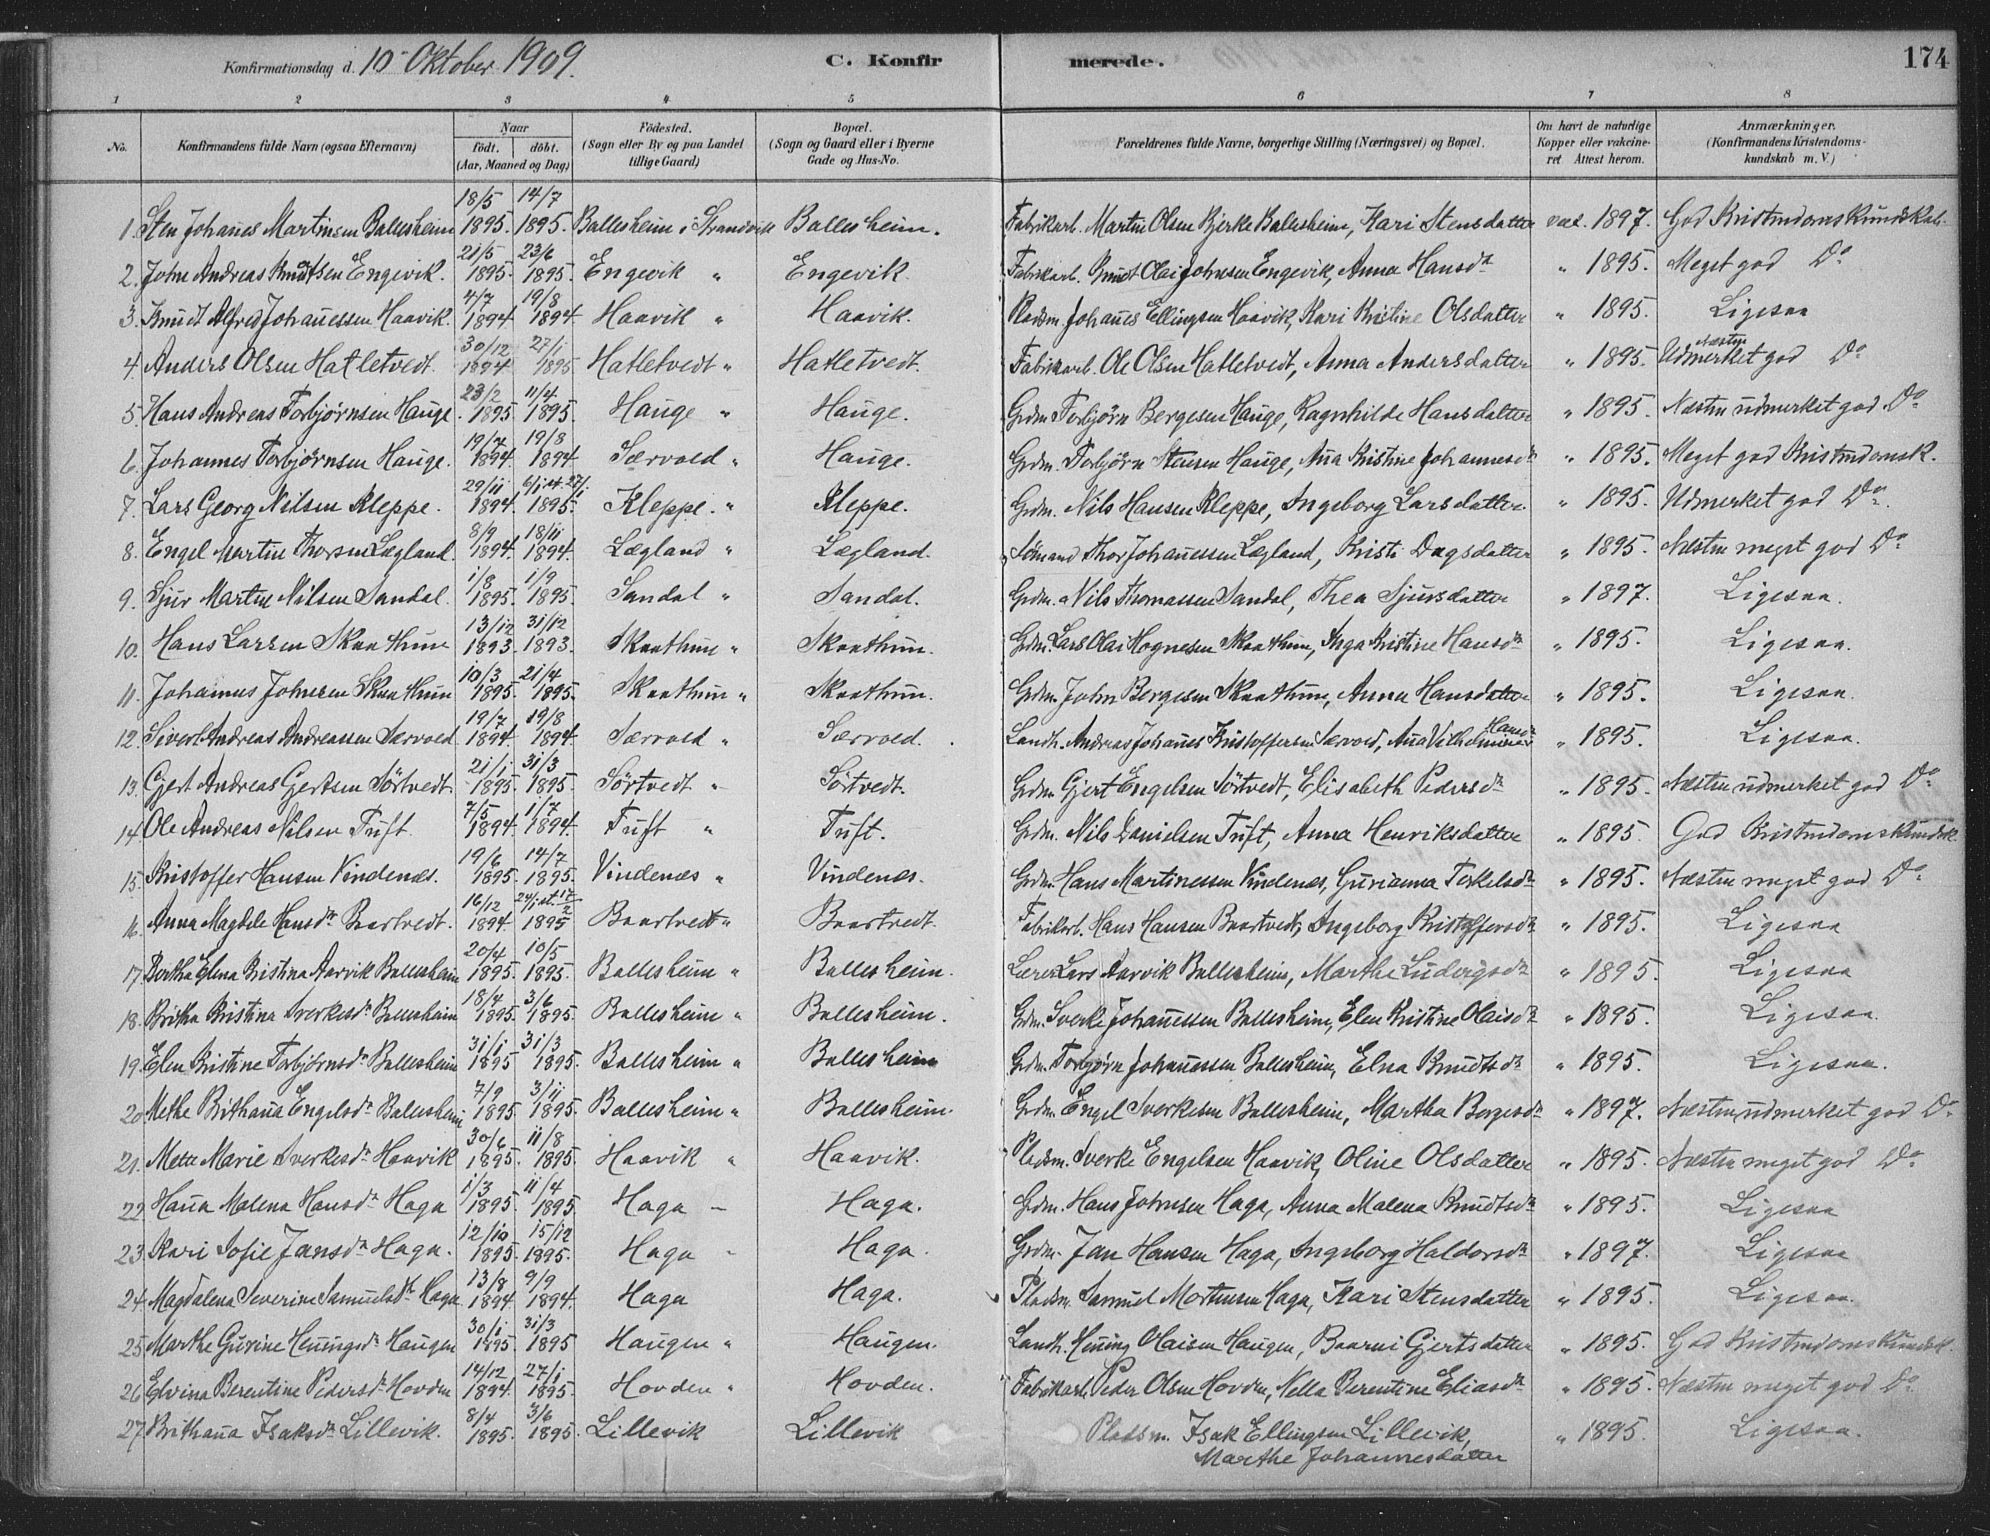 Konfirmationsdag d. 10 Oktober 1909. C. Konfirmerede. 174
1 2 3 4 5 6 7 8
No. Konfirmandens fulde Navn (ogsaa Efternavn) Naar født. døbt. (Aar, Maaned og Dag) Födested. (Sogn eller By og paa Landet tillige Gaard) Bopæl. (Sogn og Gaard eller i Byerne Gade og Hus-No. Forældrenes fulde Navne, borgerlige Stilling (Næringsvei) og Bopæl. Om havt de naturlige Kopper eller vakcineret Attest herom. Anmærkninger. (Konfirmandens Kristendomskundskab m. V.)
1. Sten Johanes Martinsen Ballesheim 18/5 1895. 14/7 1895. Ballesheim i Strandvik Ballesheim. Fabrikarb. Martin Olsen Bjerke Ballesheim, Kari Stensdatter vac. 1897. God Kristendomskundskab.
2. John Andreas Knudtsen Engevik. 21/5 1895. 23/6 1895. Engevik " Engevik. Fabrikarb. Knudt Olai Johnsen Engevik, Anna Hansdr " 1895. Meget god Do
3. Knudt Alfred Johanessen Haavik. 4/7 1894 19/8 1894. Haavik " Haavik. Pladsm. Johanes Ellingsen Haavik, Kari Kristine Olsdatter " 1895. Ligesaa
4. Anders Olsen Hatletvedt. 30/12 1894 27/1 1895 Hatletvedt " Hatletvedt. Fabrikarb. Ole Olsen Hatletvedt, Anna Andersdatter " 1895. Næsten Udmerket god Do
5. Hans Andreas Torbjørnsen Hauge. 23/2 1895. 11/4 1895. Hauge " Hauge. Grdm. Torbjørn Bergesen Hauge, Ragnhilde Hansdatter " 1895. Næsten udmerket god Do
6. Johannes Torbjørnsen Hauge. 19/7 1894. 19/8 1894 Særvold " Hauge. Grdm. Torbjörn Stensen Hauge, Ana Kristine Johannesdr " 1895. Meget god Kristendomsk.
7. Lars Georg Nilsen Kleppe. 29/11 1894 6/1 st. 27/1 1895. Kleppe. " Kleppe. Grdm. Nils Hansen Kleppe, Ingeborg Larsdatter. " 1895. Udmerket god Do.
8. Engel Martin Thorsen Lægland. 8/9 1894. 18/11 1894. Lægland " Lægland. Sömand Thor Johanessen Lægland, Kristi Dagsdatter " 1895. Næsten meget god Do
9. Sjur Martin Nilsen Sandal. 1/8 1895. 1/9 1895. Sandal " Sandal. Grdm. Nils Thomassen Sandal, Thea Sjursdatter " 1897. Ligesaa.
10. Hans Larsen Skaathun 13/12 1893. 31/12 1893. Skaathun " Skaathun. Grdm. Lars Olai Hognesen Skaathun, Inga Kristine Hansdr " 1895. Ligesaa.
11. Johannes Johnsen Skaathun 10/3 1895. 21/4 1895. Skaathun " Skaathun. Grdm. John Bergesen Skaathun, Anna Hansdatter " 1895. Ligesaa.
12. Sivert Andreas Andreassen Særvold 19/7 1894. 19/8 1894. Særvold " Særvold. Landh. Andreas Johanes Kristoffersen Særvold, Ana Vilhelmine Hansdr " 1895. Ligesaa.
13. Gjert Andreas Gjertsen Sörtvedt. 21/1 1895. 31/3 1895. Sörtvedt " Sörtvedt. Grdm. Gjert Engelsen Sörtvedt, Elisabeth Pedersdr " 1895. Næsten udmerket god Do
14. Ole Andreas Nilsen Tuft. 7/5 1894. 1/7 1894. Tuft " Tuft. Grdm. Nils Danielsen Tuft, Anna Henriksdatter " 1895. God Kristendomskundsk.
15. Kristoffer Hansen Vindenæs. 19/6 1895. 14/7 1895 Vindenæs " Vindenæs. Grdm. Hans Martinessen Vindenæs, Gurianna Torkelsdr " 1895. Næsten meget god Do
16. Anna Magdele Hansdr Baartvedt. 16/12 1894. 24/1 st. 17/2 1895 Baartvedt " Baartvedt. Fabrikarb. Hans Hansen Baartvedt, Ingeborg Kristoffersdr " 1895. Ligesaa
17. Bertha Elena Kristina Aarvik Ballesheim 20/4 1895. 10/5 1895. Ballesheim " Ballesheim. Lærer Lars Aarvik Ballesheim, Marthe Ludvigsdr " 1895. Ligesaa
18. Britha Kristina Sverkesdr Ballesheim 18/4 1895. 3/6 1895. Ballesheim " Ballesheim. Grdm. Sverke Johanessen Ballesheim, Elen Kristine Olaisdr " 1895. Ligesaa.
19. Elen Kristine Torbjörnsdr Ballesheim 31/1 1895 31/3 1895. Ballesheim " Ballesheim Grdm. Torbjørn Johanessen Ballesheim, Elna Knudtsdr " 1895. Ligesaa.
20. Methe Brithana Engelsdr Ballesheim 7/9 1895. 3/11 1895. Ballesheim " Ballesheim. Grdm. Engel Sverkesen Ballesheim, Martha Bergesdr " 1897. Næsten udmerket god Do
21. Mette Marie Sverkesdr Haavik 30/6 1895. 11/8 1895. Haavik " Haavik. Pladsm. Sverke Engelsen Haavik, Oline Olsdatter " 1895. Næsten meget god Do
22. Hana Malena Hansdr Haga 1/3 1895. 11/4 1895. Haga " Haga. Grdm. Hans Johnsen Haga, Anna Malena Knudtsdr " 1895. Ligesaa
23. Kari Sofie Jansdr Haga. 12/10 1895. 15/12 1895. Haga " Haga. Grdm. Jan Hansen Haga, Ingeborg Haldorsdr " 1897. Ligesaa
24. Magdalena Severine Samuelsdr Haga 13/8 1894 9/9 1894. Haga Haga. Pladsm. Samuel Mortensen Haga, Kari Stensdatter " 1895. Ligesaa.
25. Marthe Gurine Heningsdr Haugen 30/1 1895. 31/3 1895 Haugen " Haugen. Landh. Hening Olaisen Haugen, Baarni Gjertsdatter " 1895. God Kristendomskundsk.
26. Elvina Berentine Pedersdr Hovden 14/12 1894. 27/1 1895. Hovden " Hovden. Fabrikarb. Peder Olsen Hovden, Nella Berentine Eliasdr " 1895. Næsten meget god Do
27. Brithana Isaksdr Lillevik. 8/4 1895. 3/6 1895. Lillevik Lillevik Pladsm. Isak Ellingsen Lillevik, " 1895. Ligesaa.
Marthe Johannesdatter